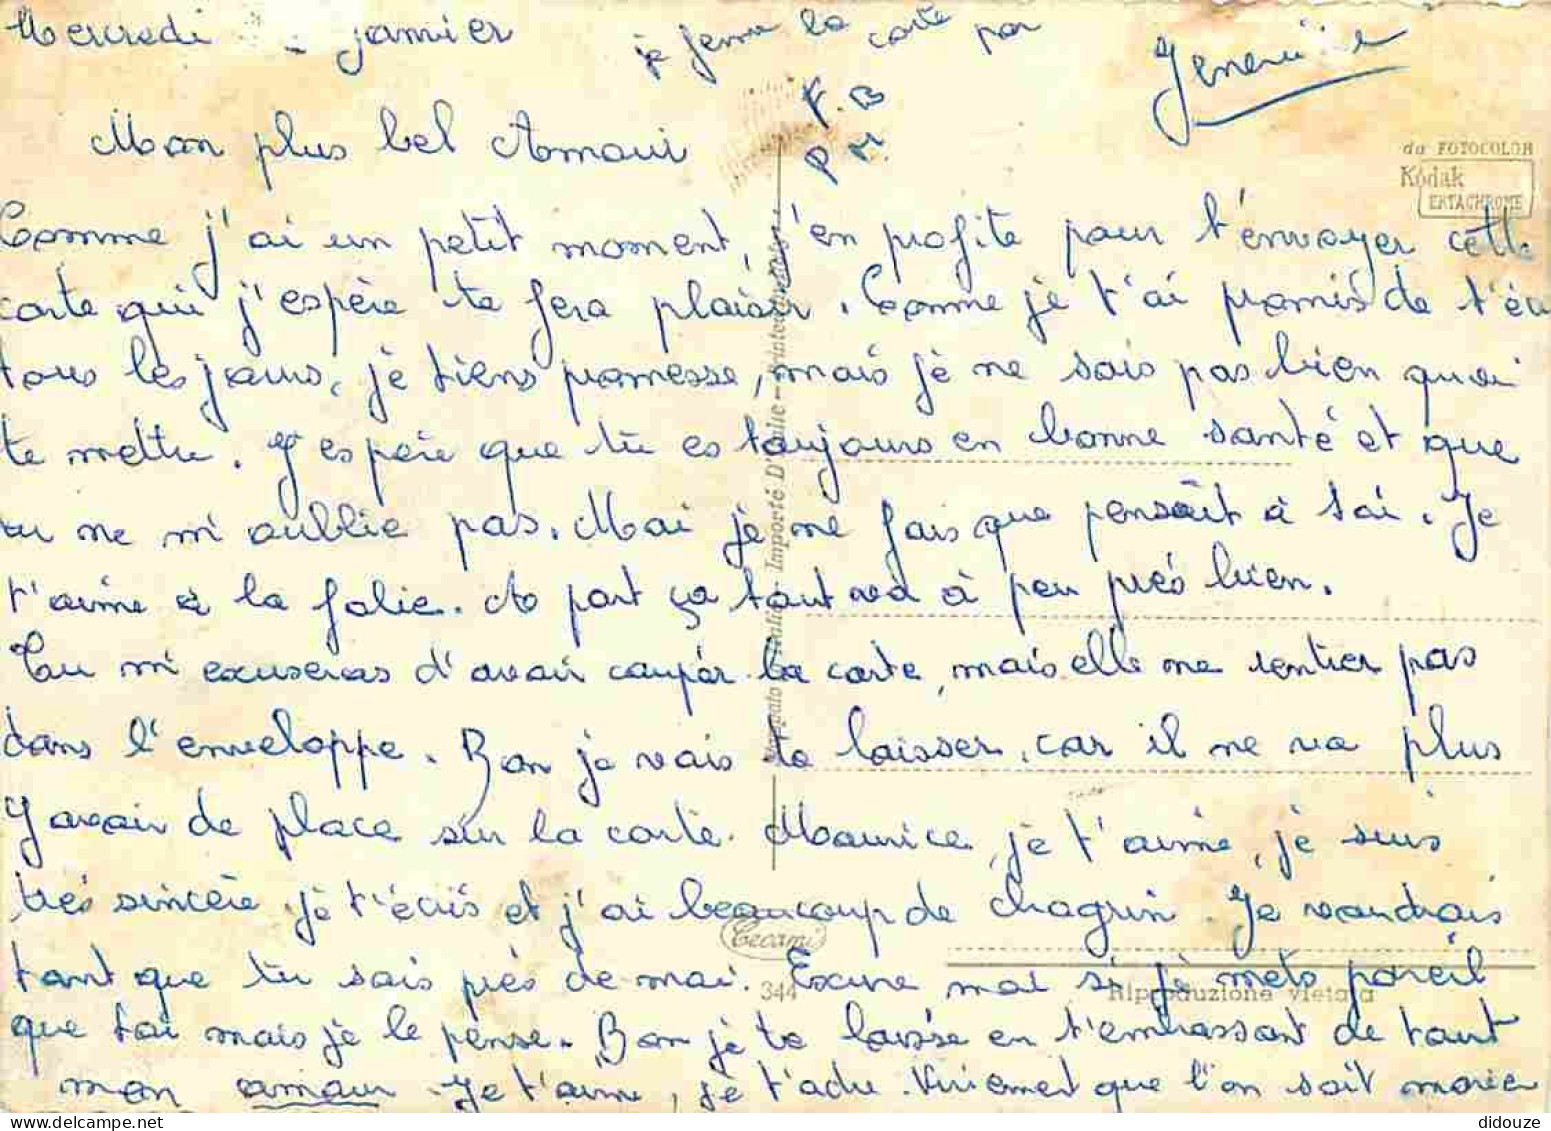 Mercredi janvier
je ferme la carte par
F.B
P M.
Geneviève
Mon plus bel Amour
da FOTOCOLOR
Kodak
EKTACHROME
Comme j'ai un petit moment, j'en profite pour t'envoyer cette
carte qui j'espère te fera plaisir. Comme je t'ai promis de t'éc
tous les jours, je tiens promesse, mais je ne sais pas bien quoi
te mettre. J'espère que tu es toujours en bonne santé et que
tu ne m'oublie pas. Moi je ne fais que pensait à toi. Je
t'aime à la folie. A part ça tout va à peu près bien.
Tu m'excuseras d'avoir couper la carte, mais elle ne rentrer pas
dans l'enveloppe. Bon je vais te laisser, car il ne va plus
y avoir de place sur la carte. Maurice, je t'aime, je suis
très sincère je t'écris et j'ai beaucoup de chagrin. Je voudrais
tant que tu sois près de moi. Excuse moi si je mets pareil
que toi mais je le pense. Bon je te laisse en t'embrassant de tout
mon amour Je t'aime, je t'adore. Vivement que l'on soit marier
Importé D'Italie
Cecami
344
Riproduzione vietata
didouze